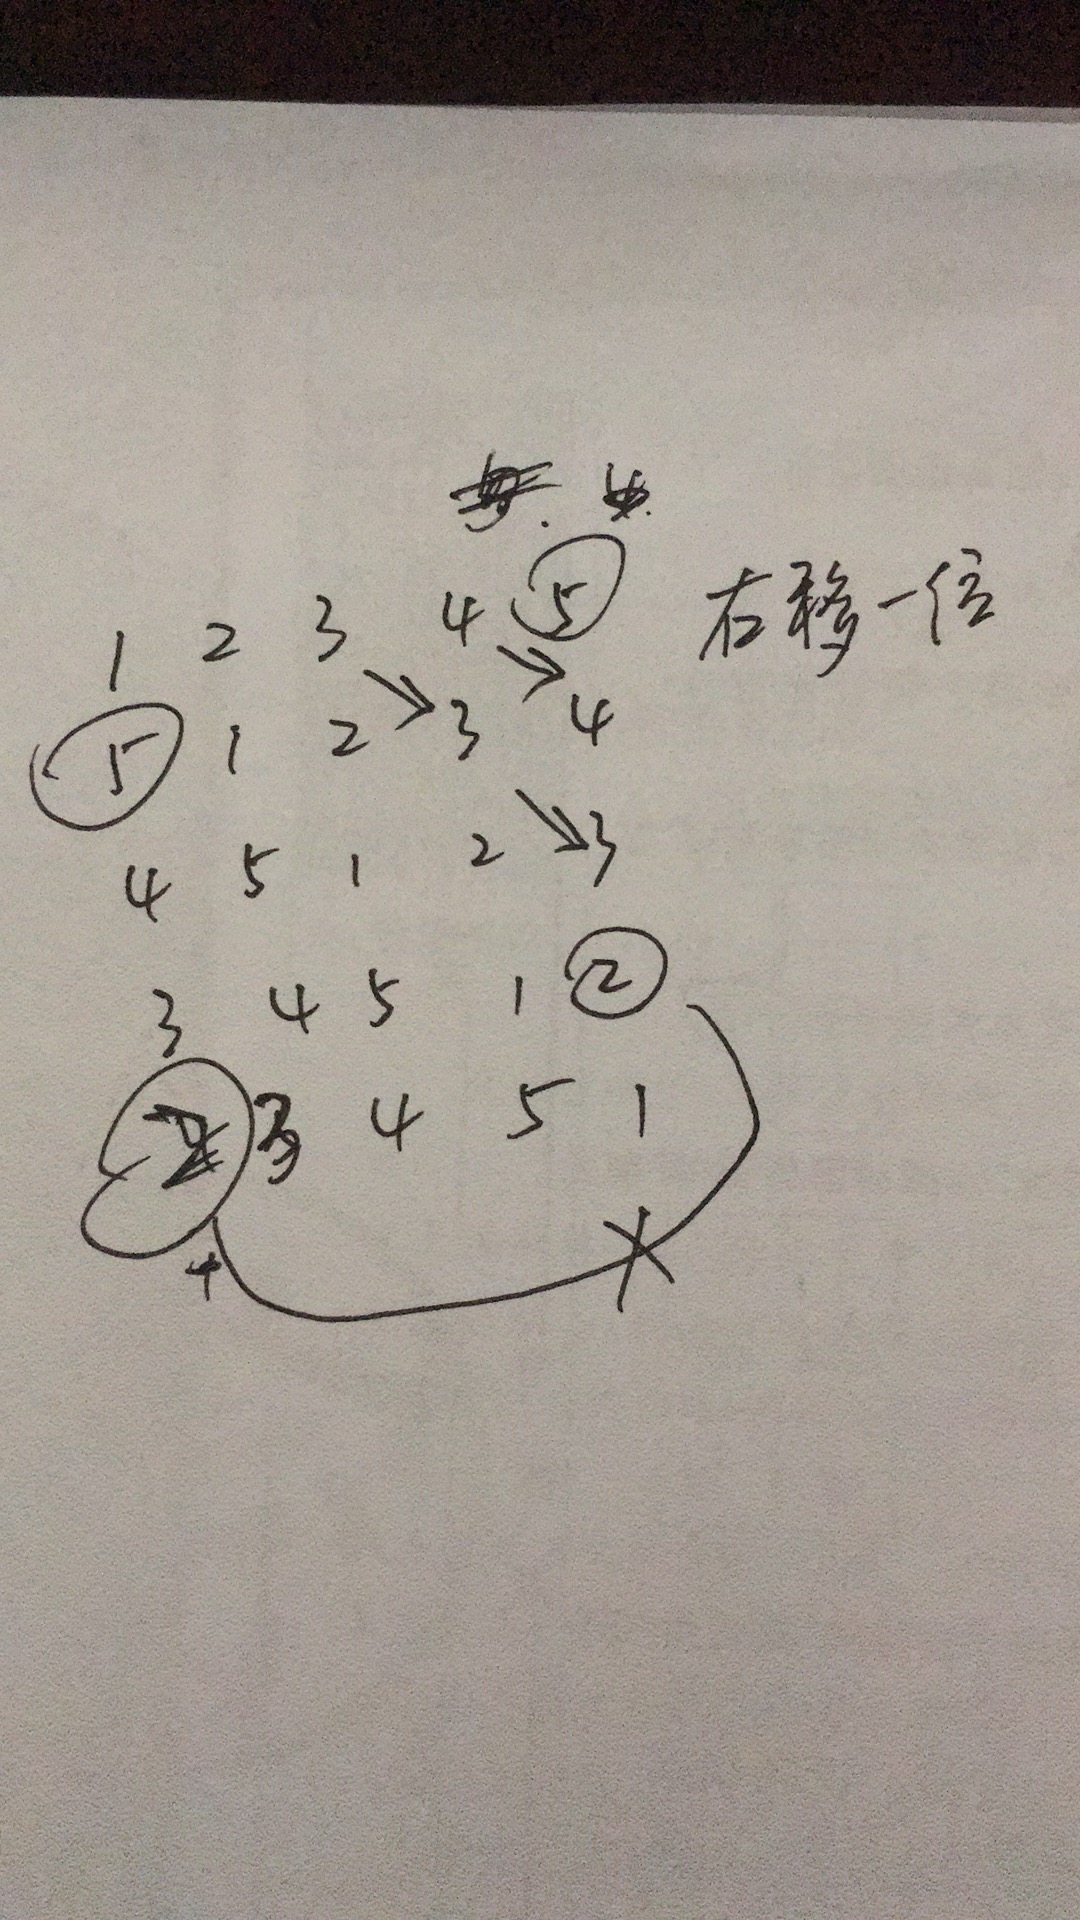 1 2 3 4 5 右移一位
5 1 2 3 4
4 5 1 2 3
3 4 5 1 2
2 3 4 5 1